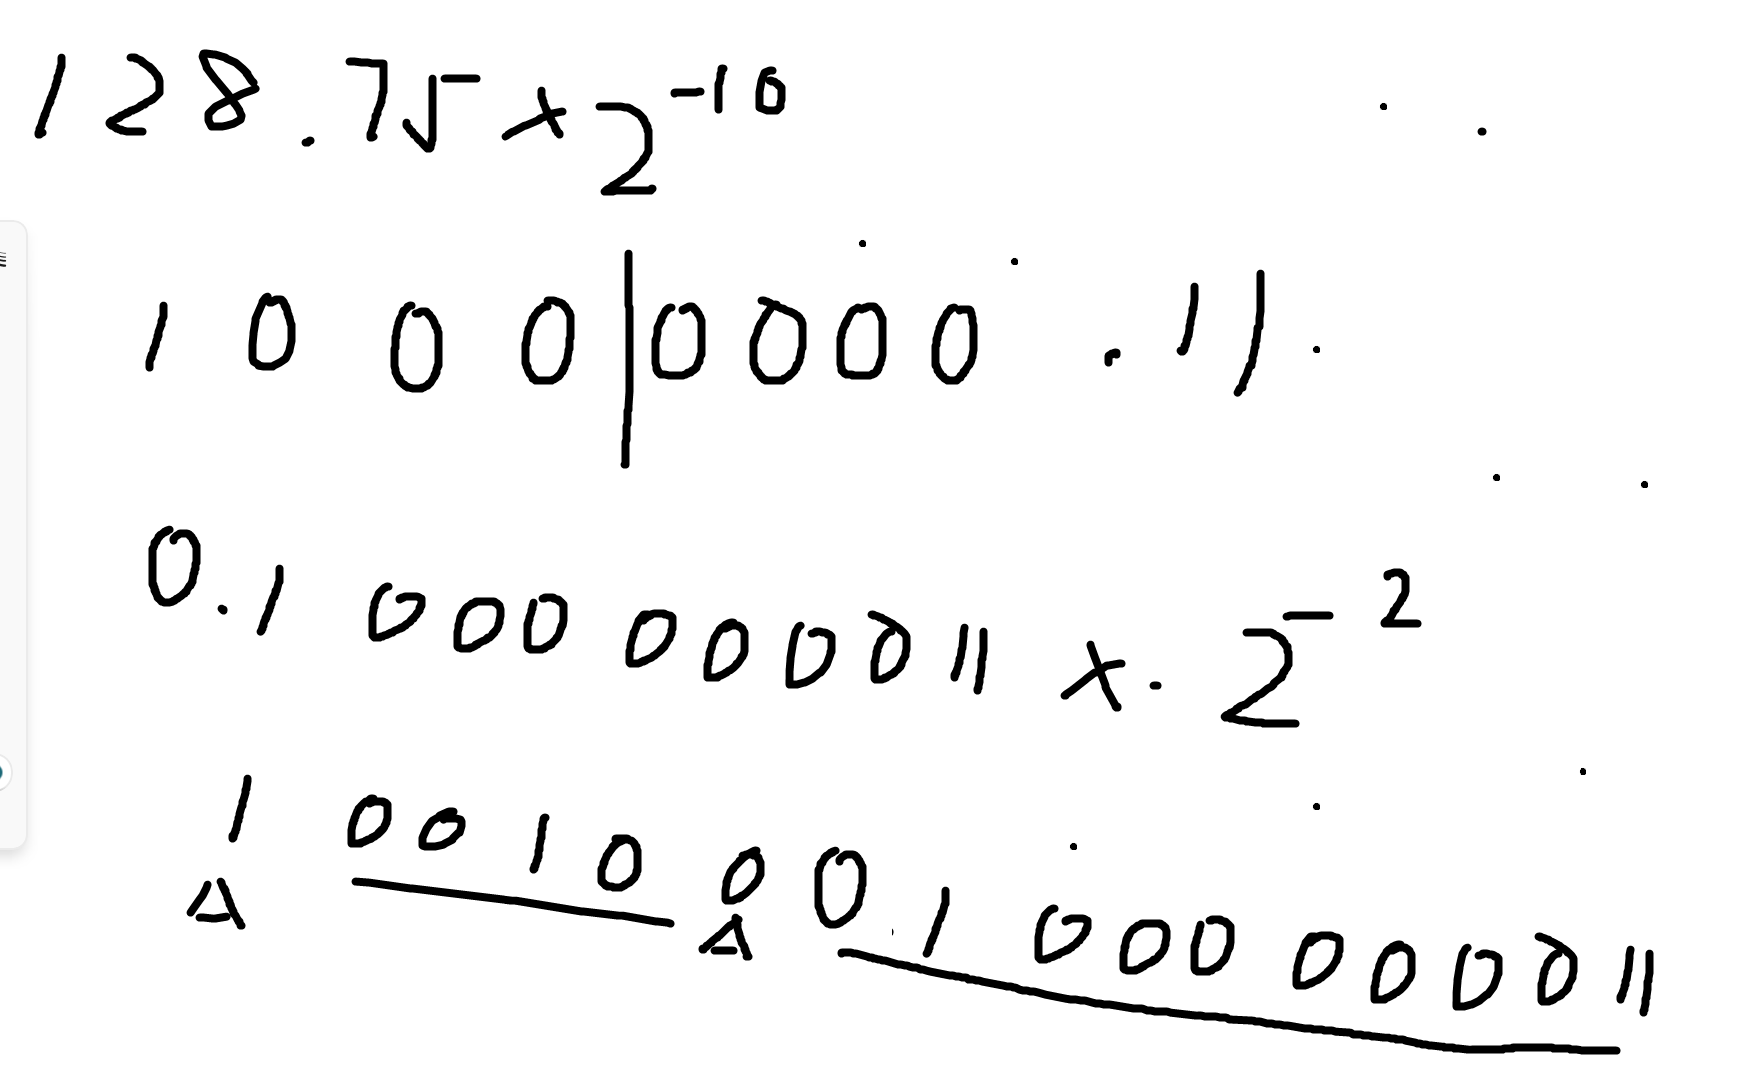 128.75 x 2^-10
1 0 0 0 | 0 0 0 0 . 1 1
0.1 000 0000 11 x. 2^-2
1 0 0 1 0 0 0.1 000 0000 11
Δ Δ